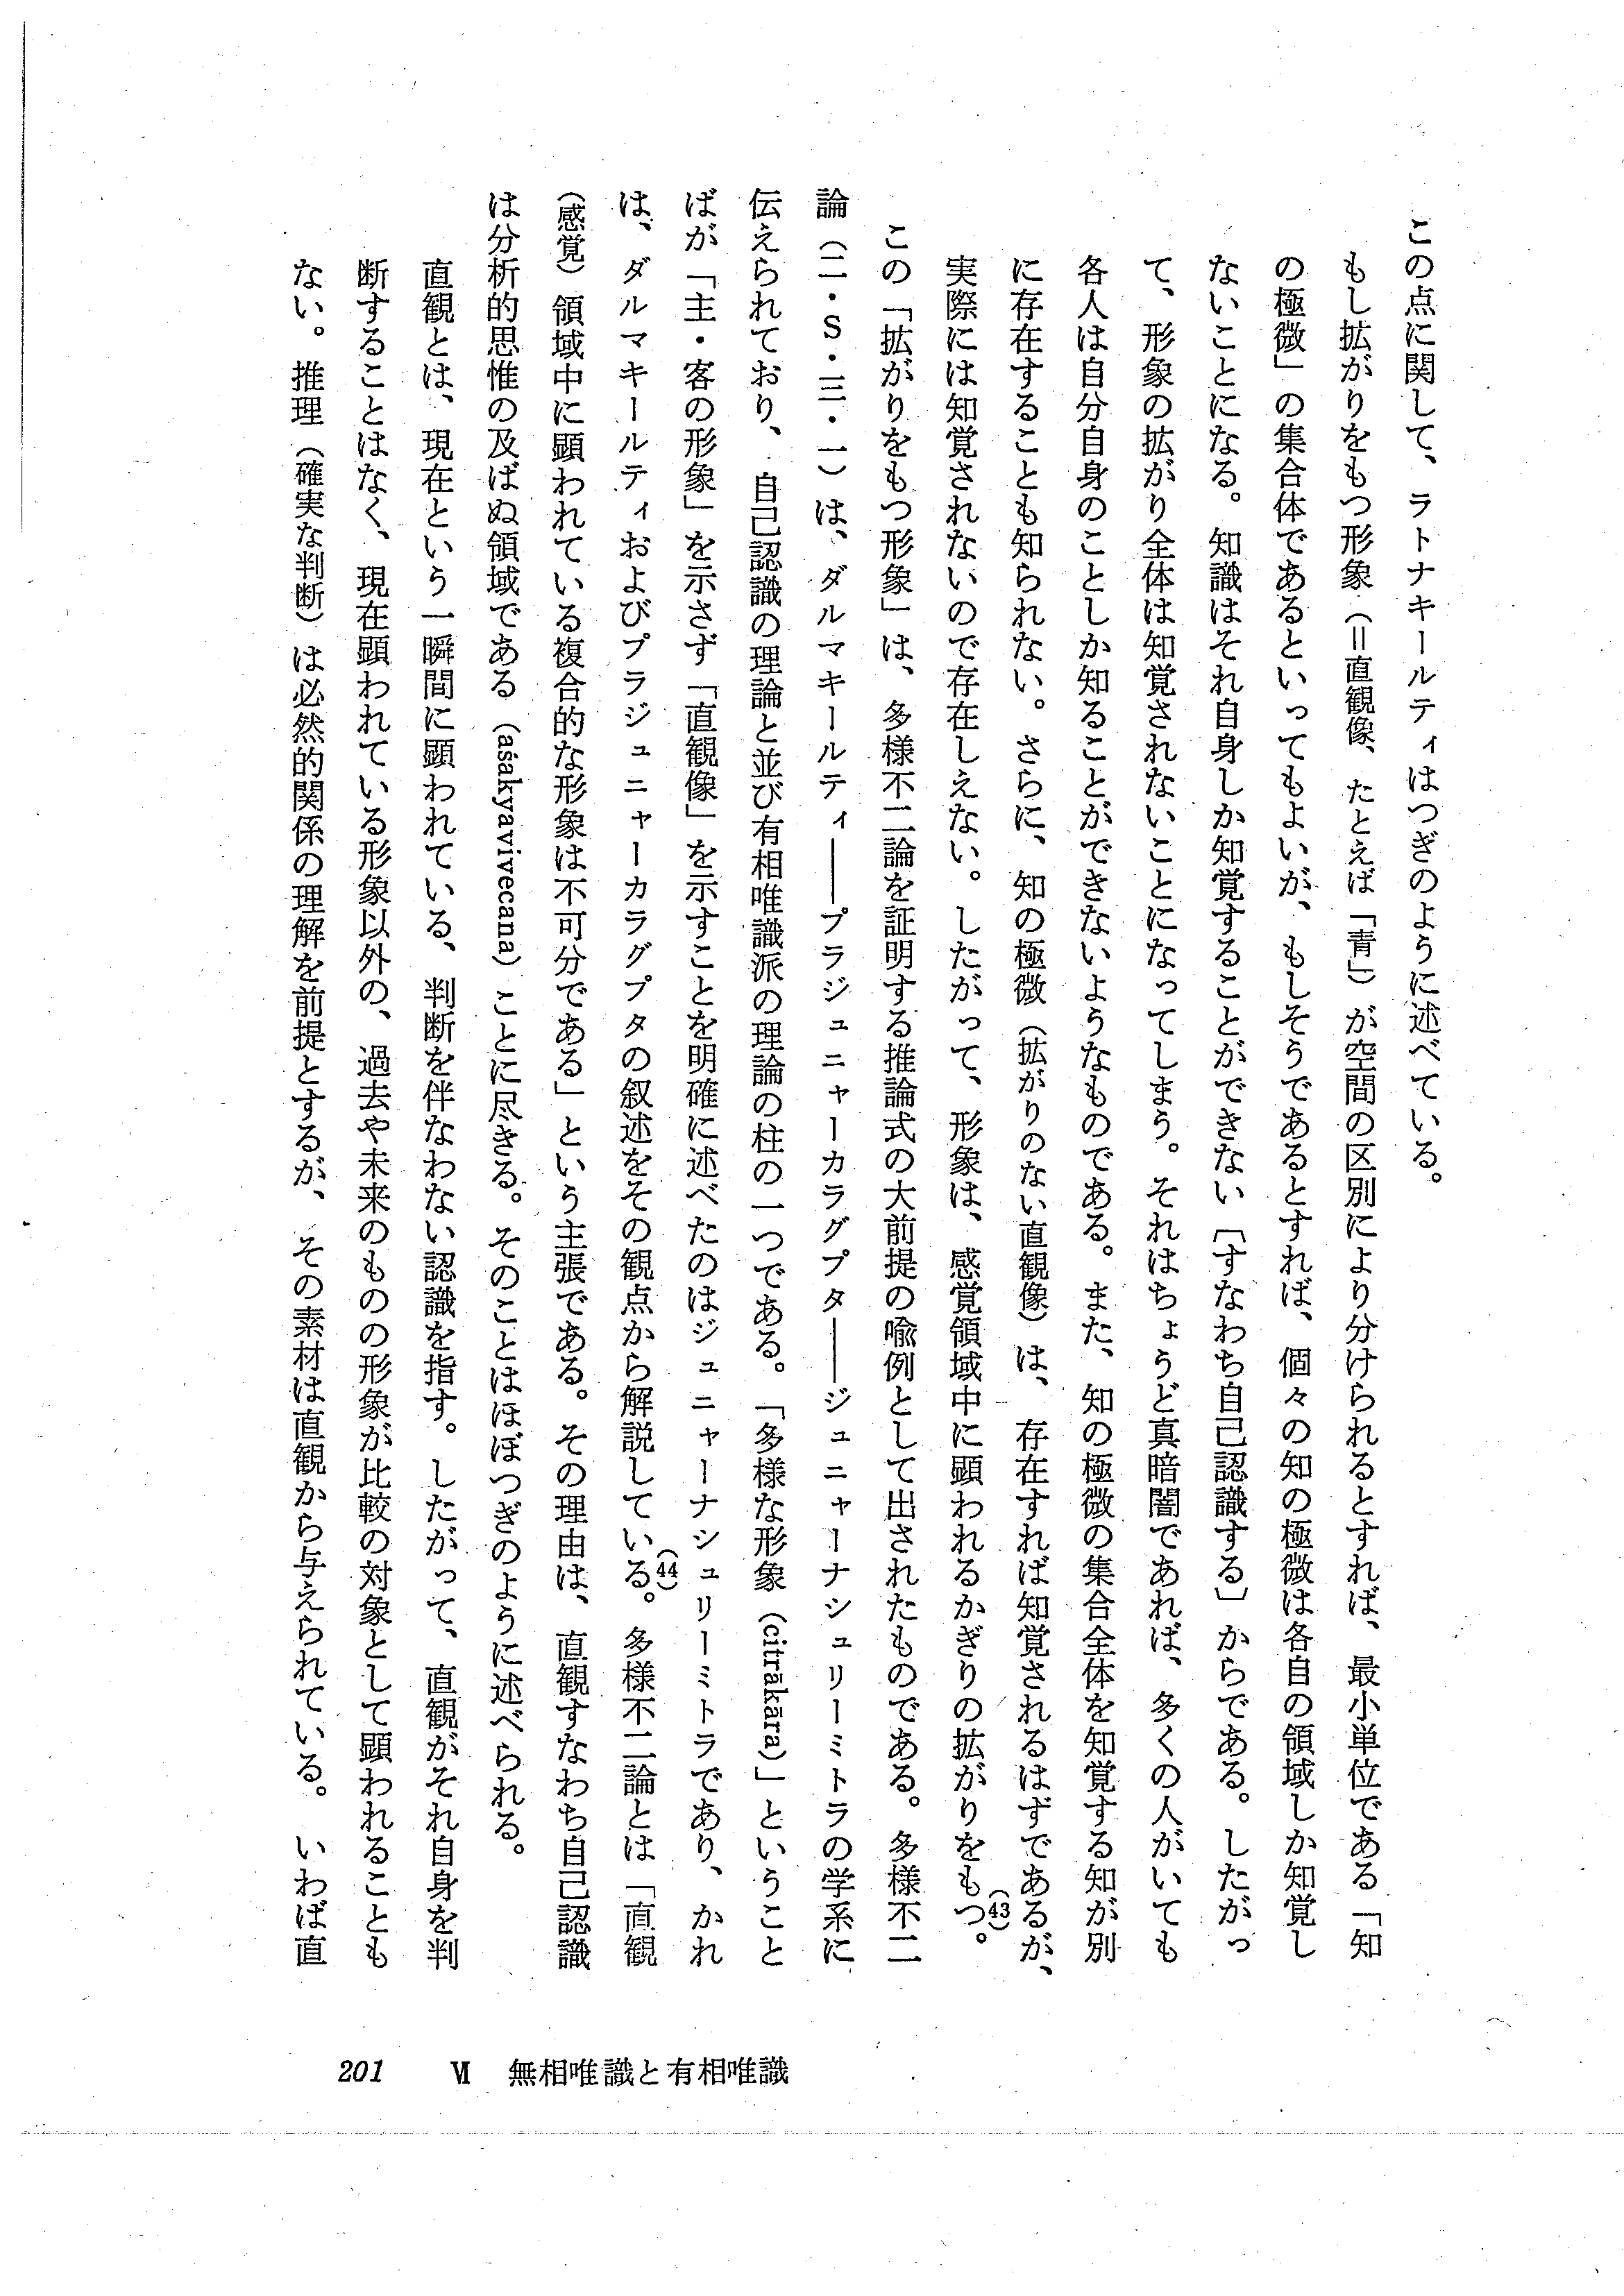 この点に関して、ラトナキールティはつぎのように述べている。
もし拡がりをもつ形象（＝直観像、たとえば「青」）が空間の区別により分けられるとすれば、最小単位である「知
の極微」の集合体であるといってもよいが、もしそうであるとすれば、個々の知の極微は各自の領域しか知覚し
ないことになる。知識はそれ自身しか知覚することができない〔すなわち自己認識する〕からである。したがっ
て、形象の拡がり全体は知覚されないことになってしまう。それはちょうど真暗闇であれば、多くの人がいても
各人は自分自身のことしか知ることができないようなものである。また、知の極微の集合全体を知覚する知が別
に存在することも知られない。さらに、知の極微（拡がりのない直観像）は、存在すれば知覚されるはずであるが、
実際には知覚されないので存在しえない。したがって、形象は、感覚領域中に顕われるかぎりの拡がりをもつ。(43)
この「拡がりをもつ形象」は、多様不二論を証明する推論式の大前提の喩例として出されたものである。多様不二
論（二・S・三・一）は、ダルマキールティ――プラジュニャーカラグプタ――ジュニャーナシュリーミトラの学系に
伝えられており、自己認識の理論と並び有相唯識派の理論の柱の一つである。「多様な形象（citrākāra）」ということ
ばが「主・客の形象」を示さず「直観像」を示すことを明確に述べたのはジュニャーナシュリーミトラであり、かれ
は、ダルマキールティおよびプラジュニャーカラグプタの叙述をその観点から解説している。(44)多様不二論とは「直観
（感覚）領域中に顕われている複合的な形象は不可分である」という主張である。その理由は、直観すなわち自己認識
は分析的思惟の及ばぬ領域である（aśakyavivecana）ことに尽きる。そのことはほぼつぎのように述べられる。
直観とは、現在という一瞬間に顕われている、判断を伴なわない認識を指す。したがって、直観がそれ自身を判
断することはなく、現在顕われている形象以外の、過去や未来のものの形象が比較の対象として顕われることも
ない。推理（確実な判断）は必然的関係の理解を前提とするが、その素材は直観から与えられている。いわば直
201 Ⅵ 無相唯識と有相唯識